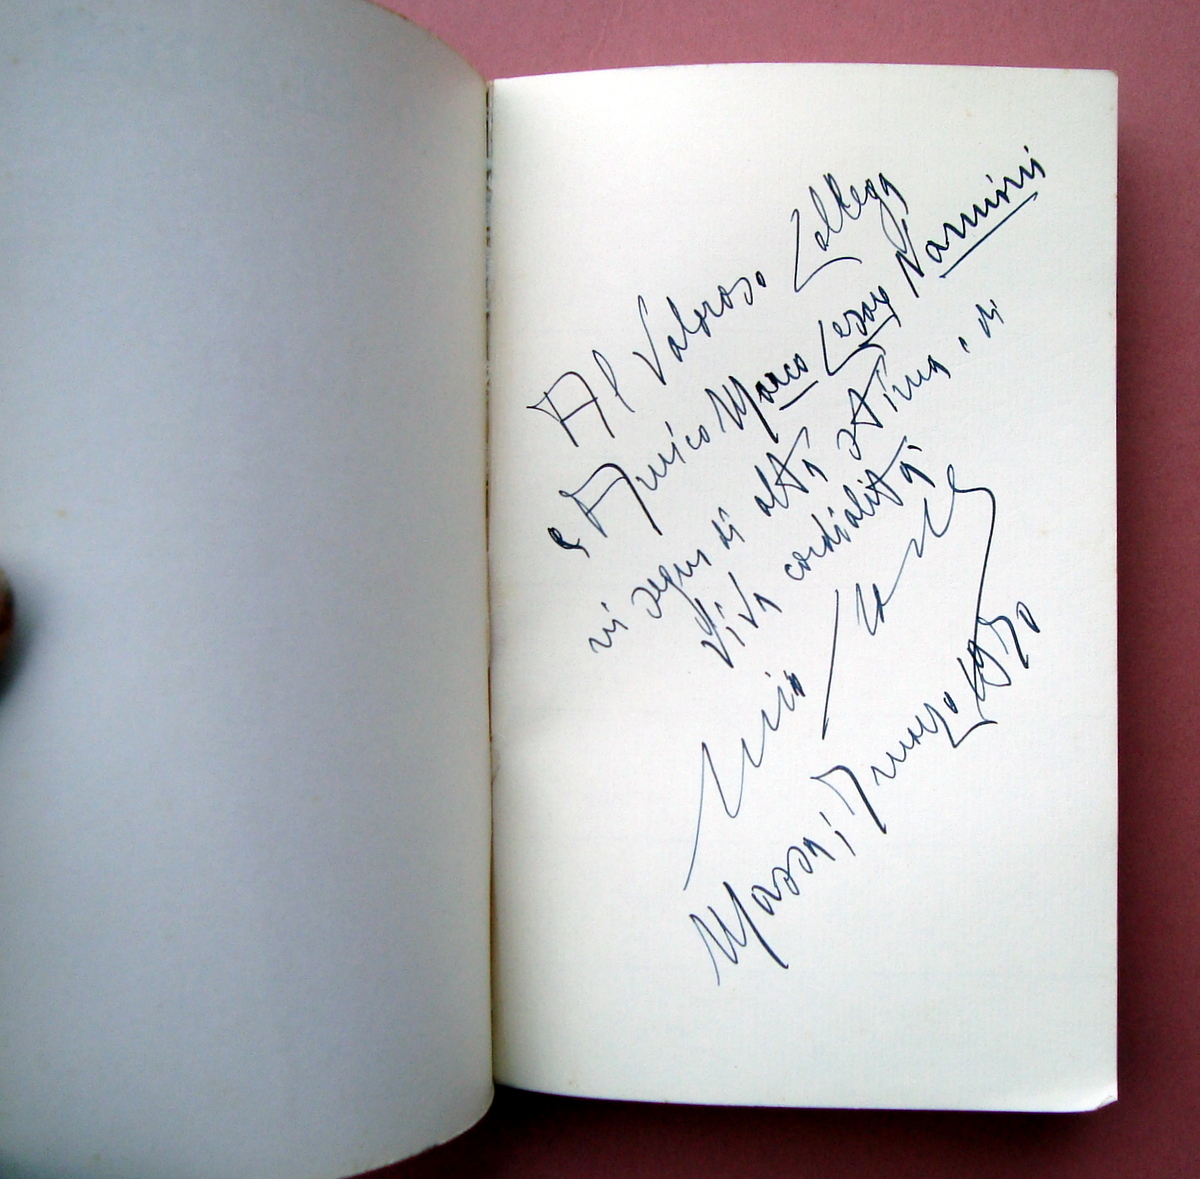 Al Valoroso Collega
e Amico Marco Cesare Nannini
in segno di alta stima e di
viva cordialità
Massa, 1970